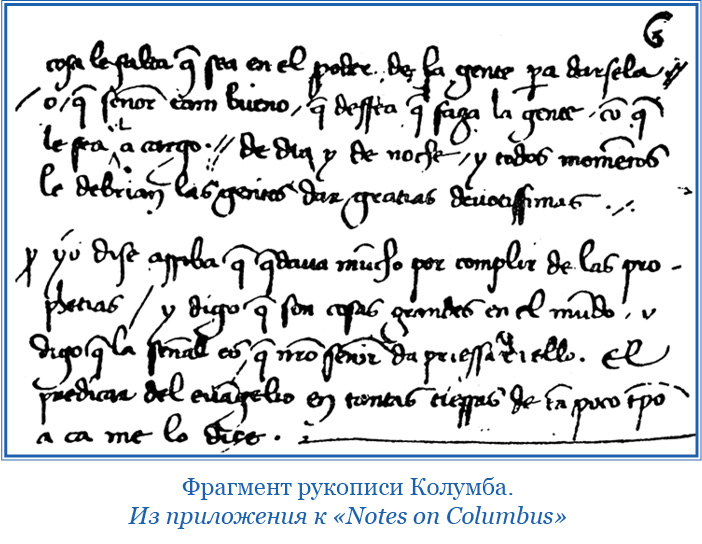 cosa le falta q̃ sea en el poder de la gente p̱a darsela //
/ o, q̃ señor tam bueno, q̃ dessea q̃ faga la gente, cõ q̃
le sea a cargo. // de dia y de noche, y todos momẽtos
le debrian las gentes dar gratias devotissimas.
yo dise arriba q̃ q̃dava mũcho por complir de las pro-
phetias / y digo q̃ son cosas grandes en el mũdo, y
digo q̃ la señal es q̃ nr̃o señor da priessa a ello. el
predicar del evãngelio en tantas tierras de tã poco tp̃o
a ca me lo dice.
Фрагмент рукописи Колумба.
Из приложения к «Notes on Columbus»